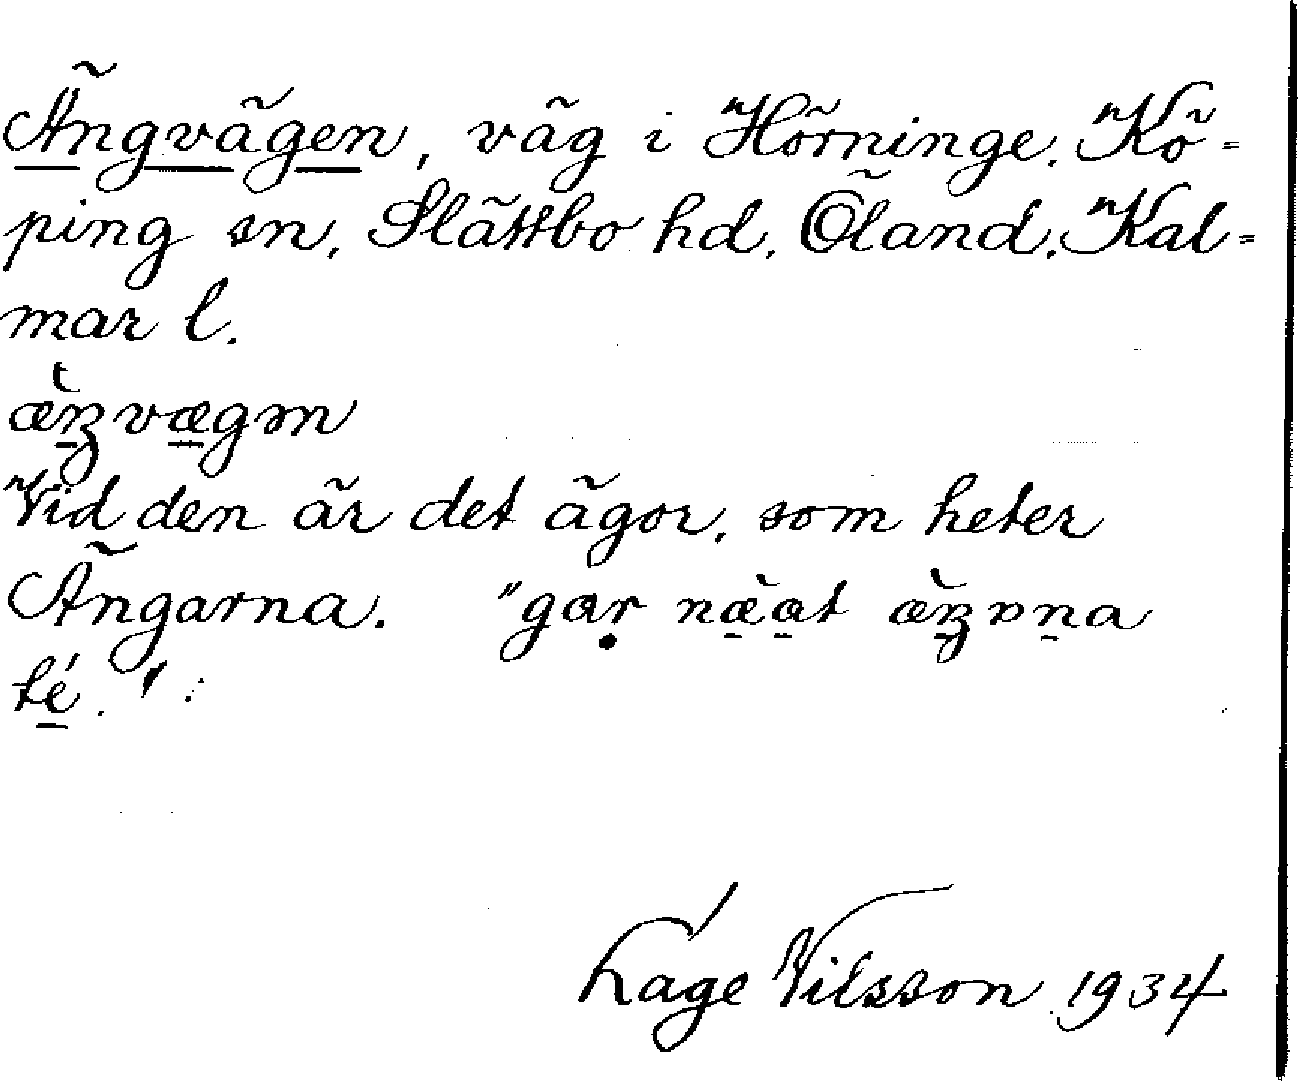 Ängvägen, väg i Hörninge, Kö=
ping sn, Slättbo hd, Öland, Kal=
mar l.
æ̀ŋvægən
Vid den är det ägor, som heter
Ängarna. "gar næ̀at æ̀ŋɒṇa
té."
Lage Nilsson 1934